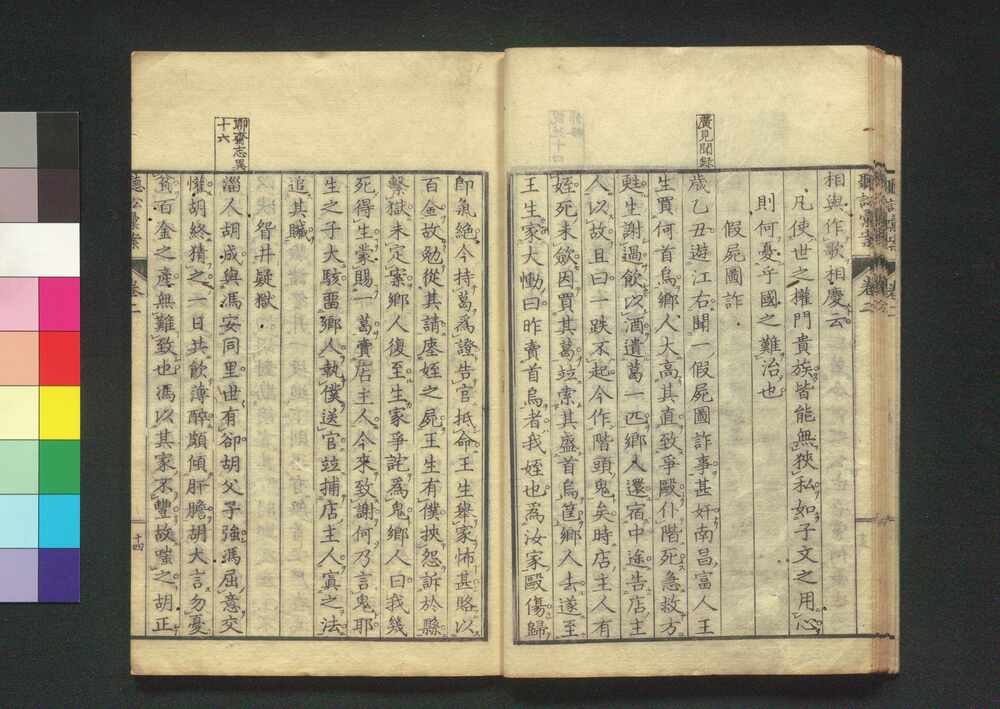 相與作歌相慶云
凡使世之權門貴族皆能無狹私如子文之用心
則何憂乎國之難治也
假屍圖詐
廣見聞録
歲乙丑遊江右聞一假屍圖詐事甚奸南昌富人王
生買何首烏鄉人大高其直致爭毆仆階死急救方
甦生謝過飲以酒遺葛一匹鄉人還宿中途告店主
人以故且曰一跌不起今作階頭鬼矣時店主人有
姪死未斂因買其葛竝索其盛首烏筐鄉人去遂至
王生家大慟曰昨賣首烏者我姪也為汝家毆傷歸
即氣絶今持葛為證告官抵命王生舉家怖甚賂以
百金故勉從其請瘞姪之屍王生有僕挾怨訴於縣
繫獄未定案鄉人復至生家爭詫為鬼鄉人曰我幾
死得生蒙賜一葛賣店主人今來致謝何乃言鬼耶
生之子大駭畱鄉人執僕送官竝捕店主人寘之法
追其贓
眢井疑獄
聊齋志異
十六
淄人胡成與馮安同里世有卻胡父子強馮屈意交
懽胡終猜之一日共飲薄醉頗傾肝膽胡大言勿憂
貧百金之產無難致也馮以其家不豐故嗤之胡正
十四